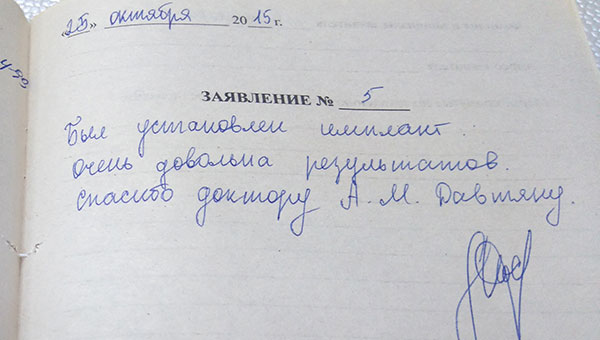 «25» октября 2015 г.
ЗАЯВЛЕНИЕ № 5
Был установлен имплант.
Очень довольна результатов.
Спасибо доктору А. М. Давтяну.